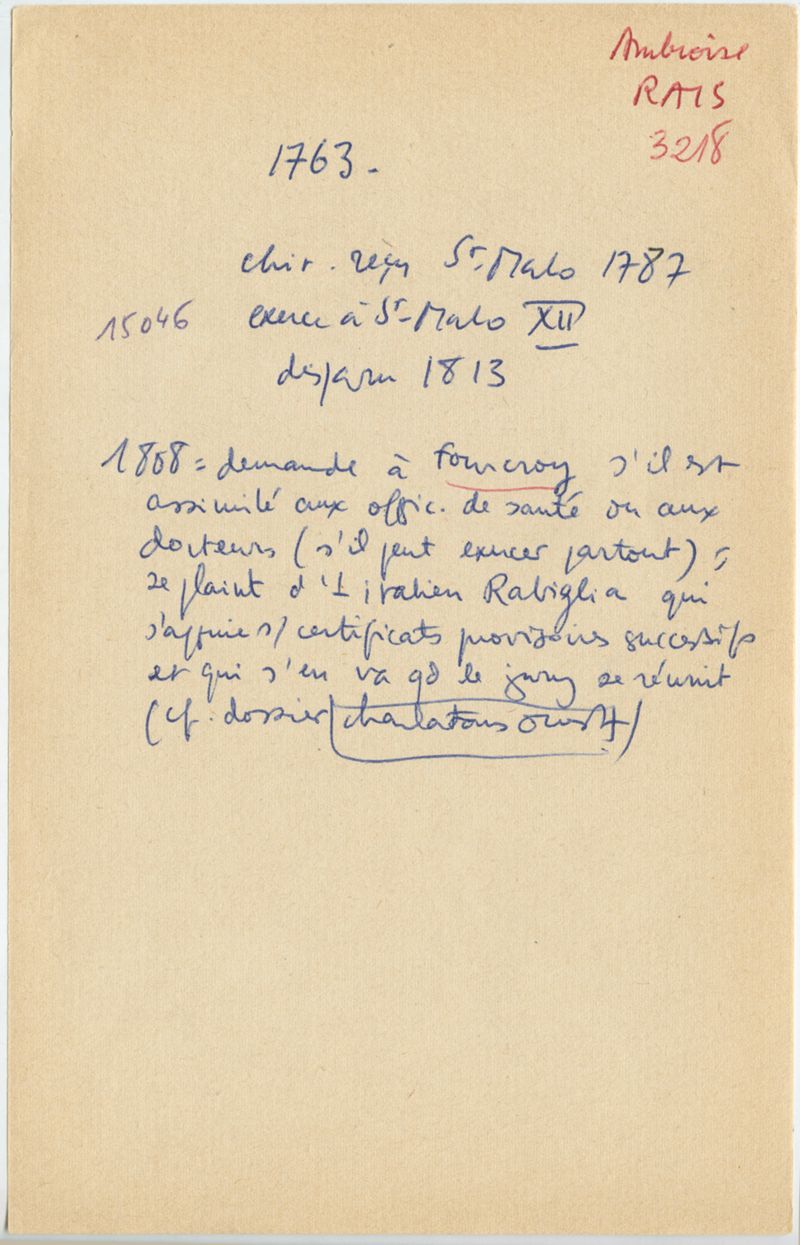 Ambroise
RAIS
3218
1763.
chir. reçu St-Malo 1787
15046 exerce à St-Malo XII
disparu 1813
1808 = demande à Fourcroy s'il est
assimilé aux offic. de santé ou aux
docteurs (s'il peut exercer partout) ;
se plaint d'1 italien Rabiglia qui
s'appuie s/ certificats provisoires successifs
et qui s'en va qd le jury se réunit
(cf. dossier charlatans ouest)